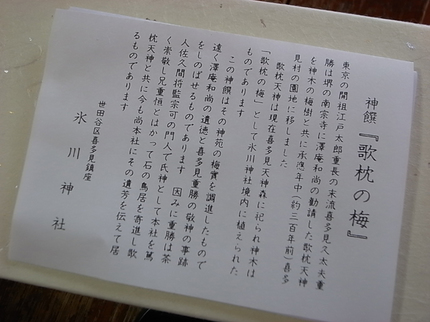 神饌『歌枕の梅』
東京の開祖江戸太郎重長の末流喜多見久太夫重
勝は堺の南宗寺に澤庵和尚の勧請した歌枕天神
を神木の梅樹と共に承應年中(約三百年前)喜多
見村の園地に移しました
歌枕天神は現在喜多見天神森に祀られ神木は
「歌枕の梅」として氷川神社境内に植えられた
ものであります
この神饌はその神苑の梅實を調進したもので
遠く澤庵和尚の遺徳と喜多見重勝の敬神の事跡
をしのばせるものであります 因みに重勝は茶
人佐久間将監宗可の門人で氏神として本社を篤
く崇敬し兄重恒とはかって石の鳥居を寄進し歌
枕天神と共に今も尚本社にその遺芳を伝えて居
るものであります
世田谷区喜多見鎮座
氷川神社